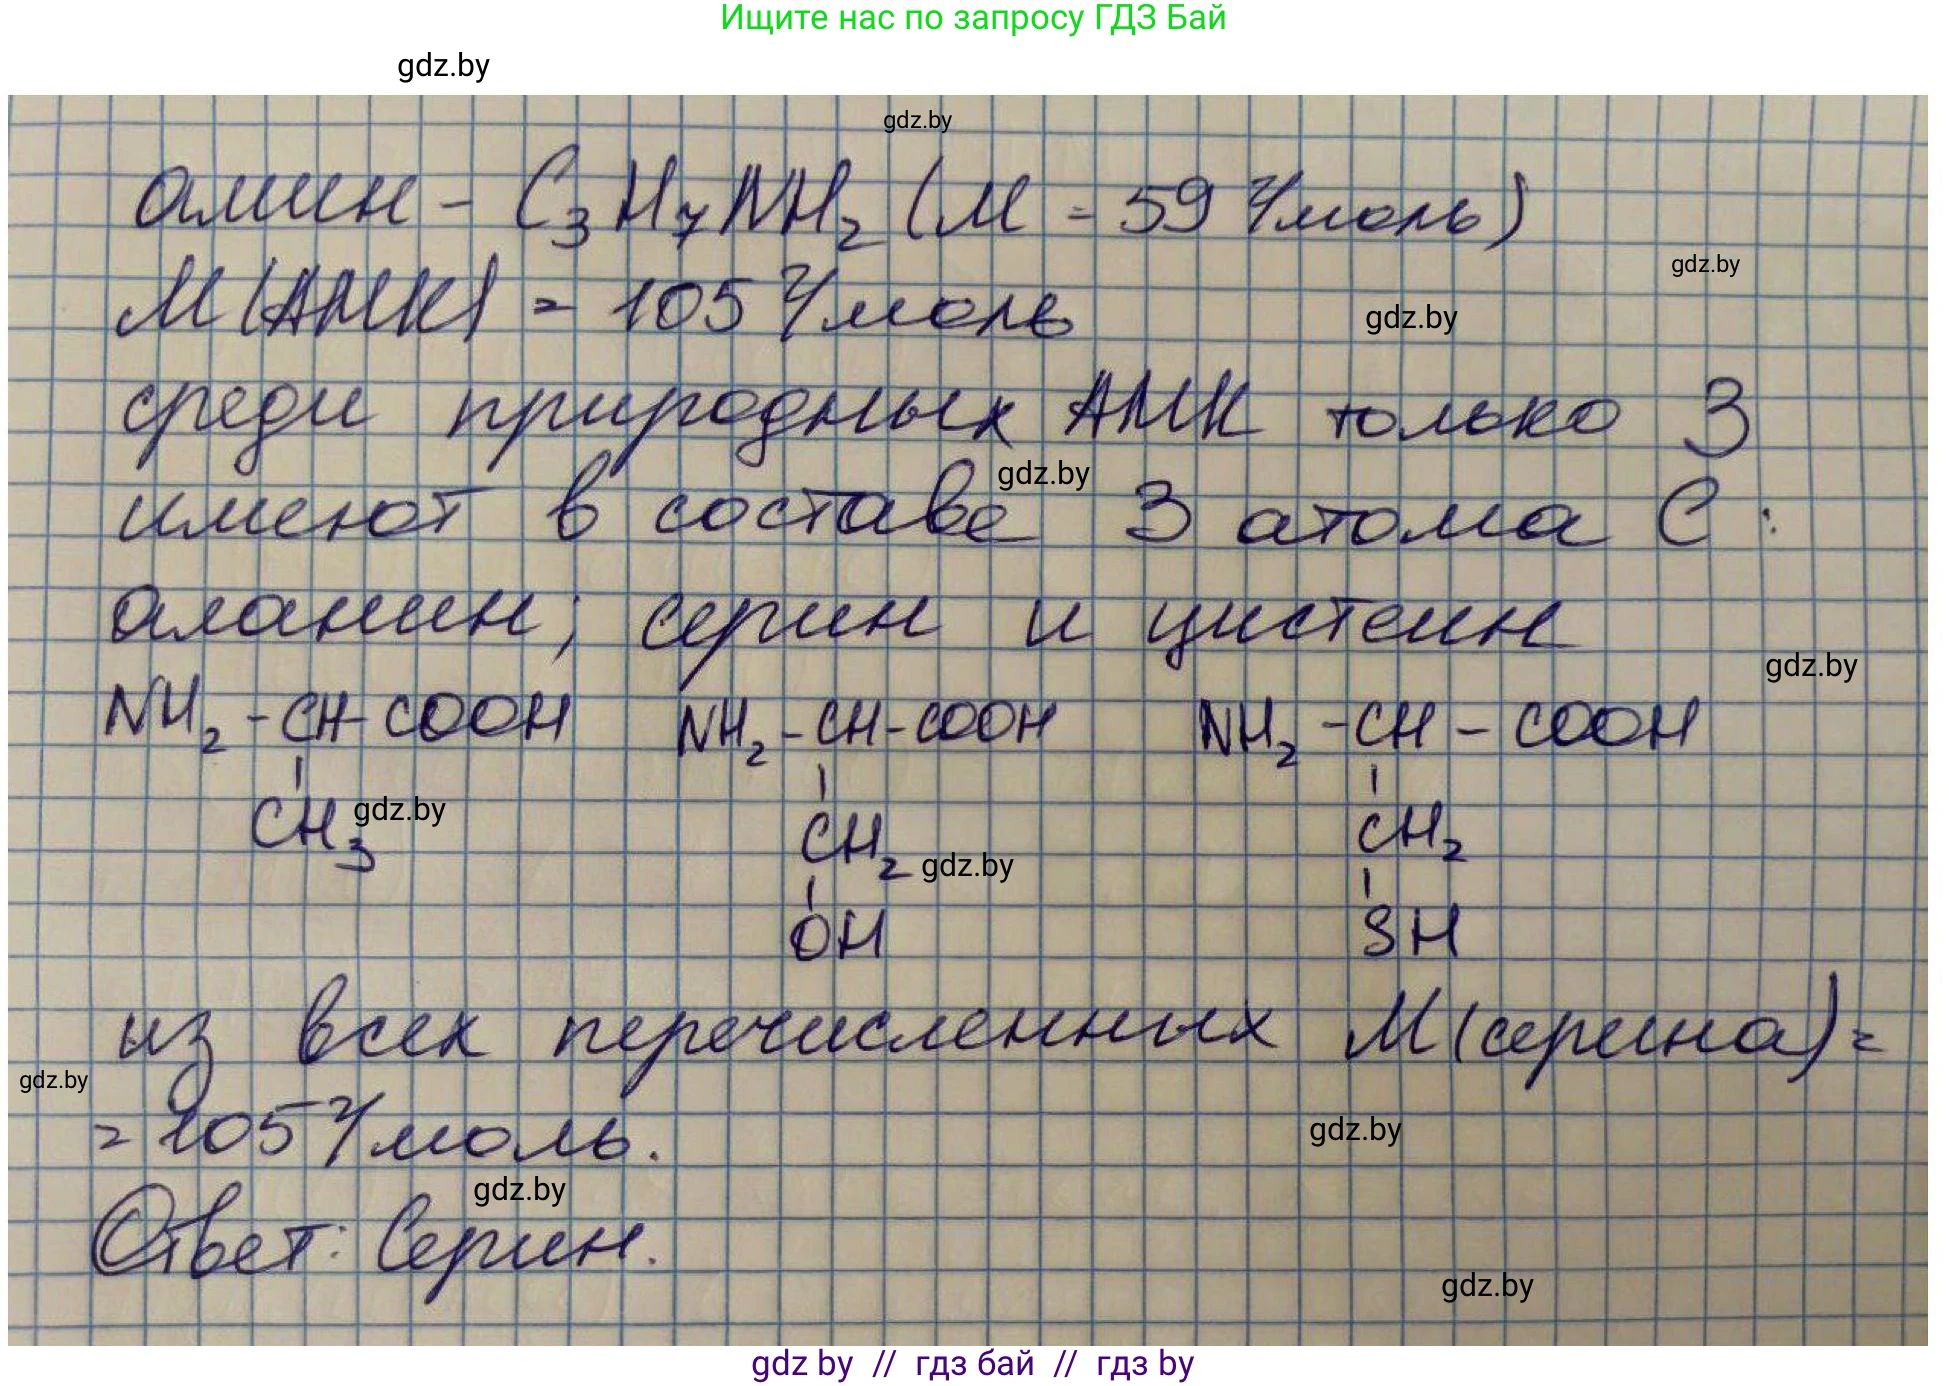 Ищите нас по запросу ГДЗ Бай
gdz.by
gdz.by
амин - C₃H₇NH₂ (M = 59 г/моль)
gdz.by
M(АМК) = 105 г/моль
gdz.by
среди природных АМК только 3
gdz.by
имеют в составе 3 атома C:
аланин; серин и цистеин
gdz.by
NH₂-CH-COOH NH₂-CH-COOH NH₂-CH-COOH
CH₃ CH₂ CH₂
gdz.by
gdz.by
OH SH
из всех перечисленных M(серина)=
gdz.by
= 105 г/моль.
gdz.by
gdz.by
Ответ: Серин.
gdz.by
gdz by // гдз бай // гдз by